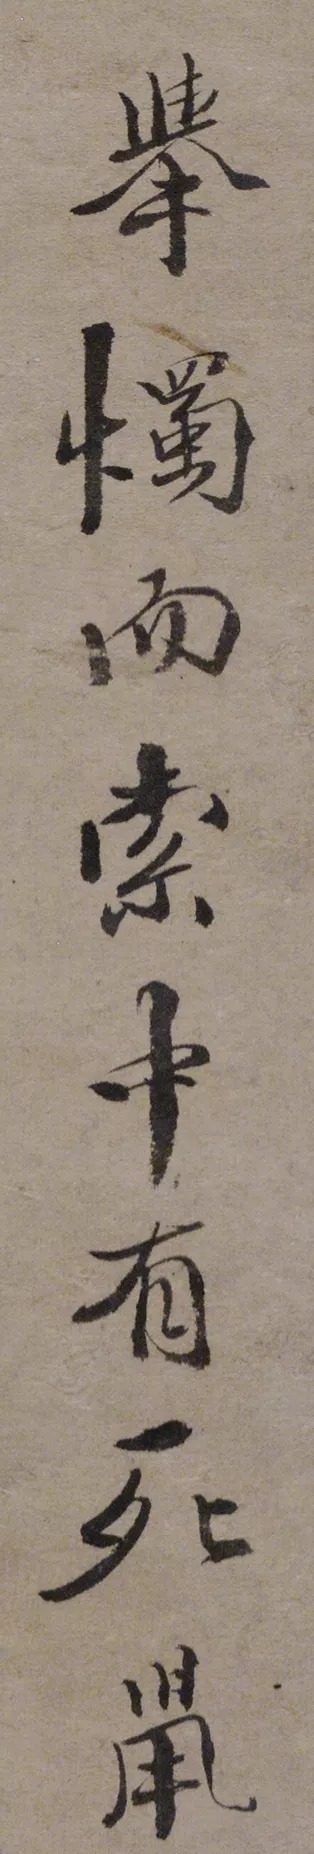 舉燭而索中有死鼠